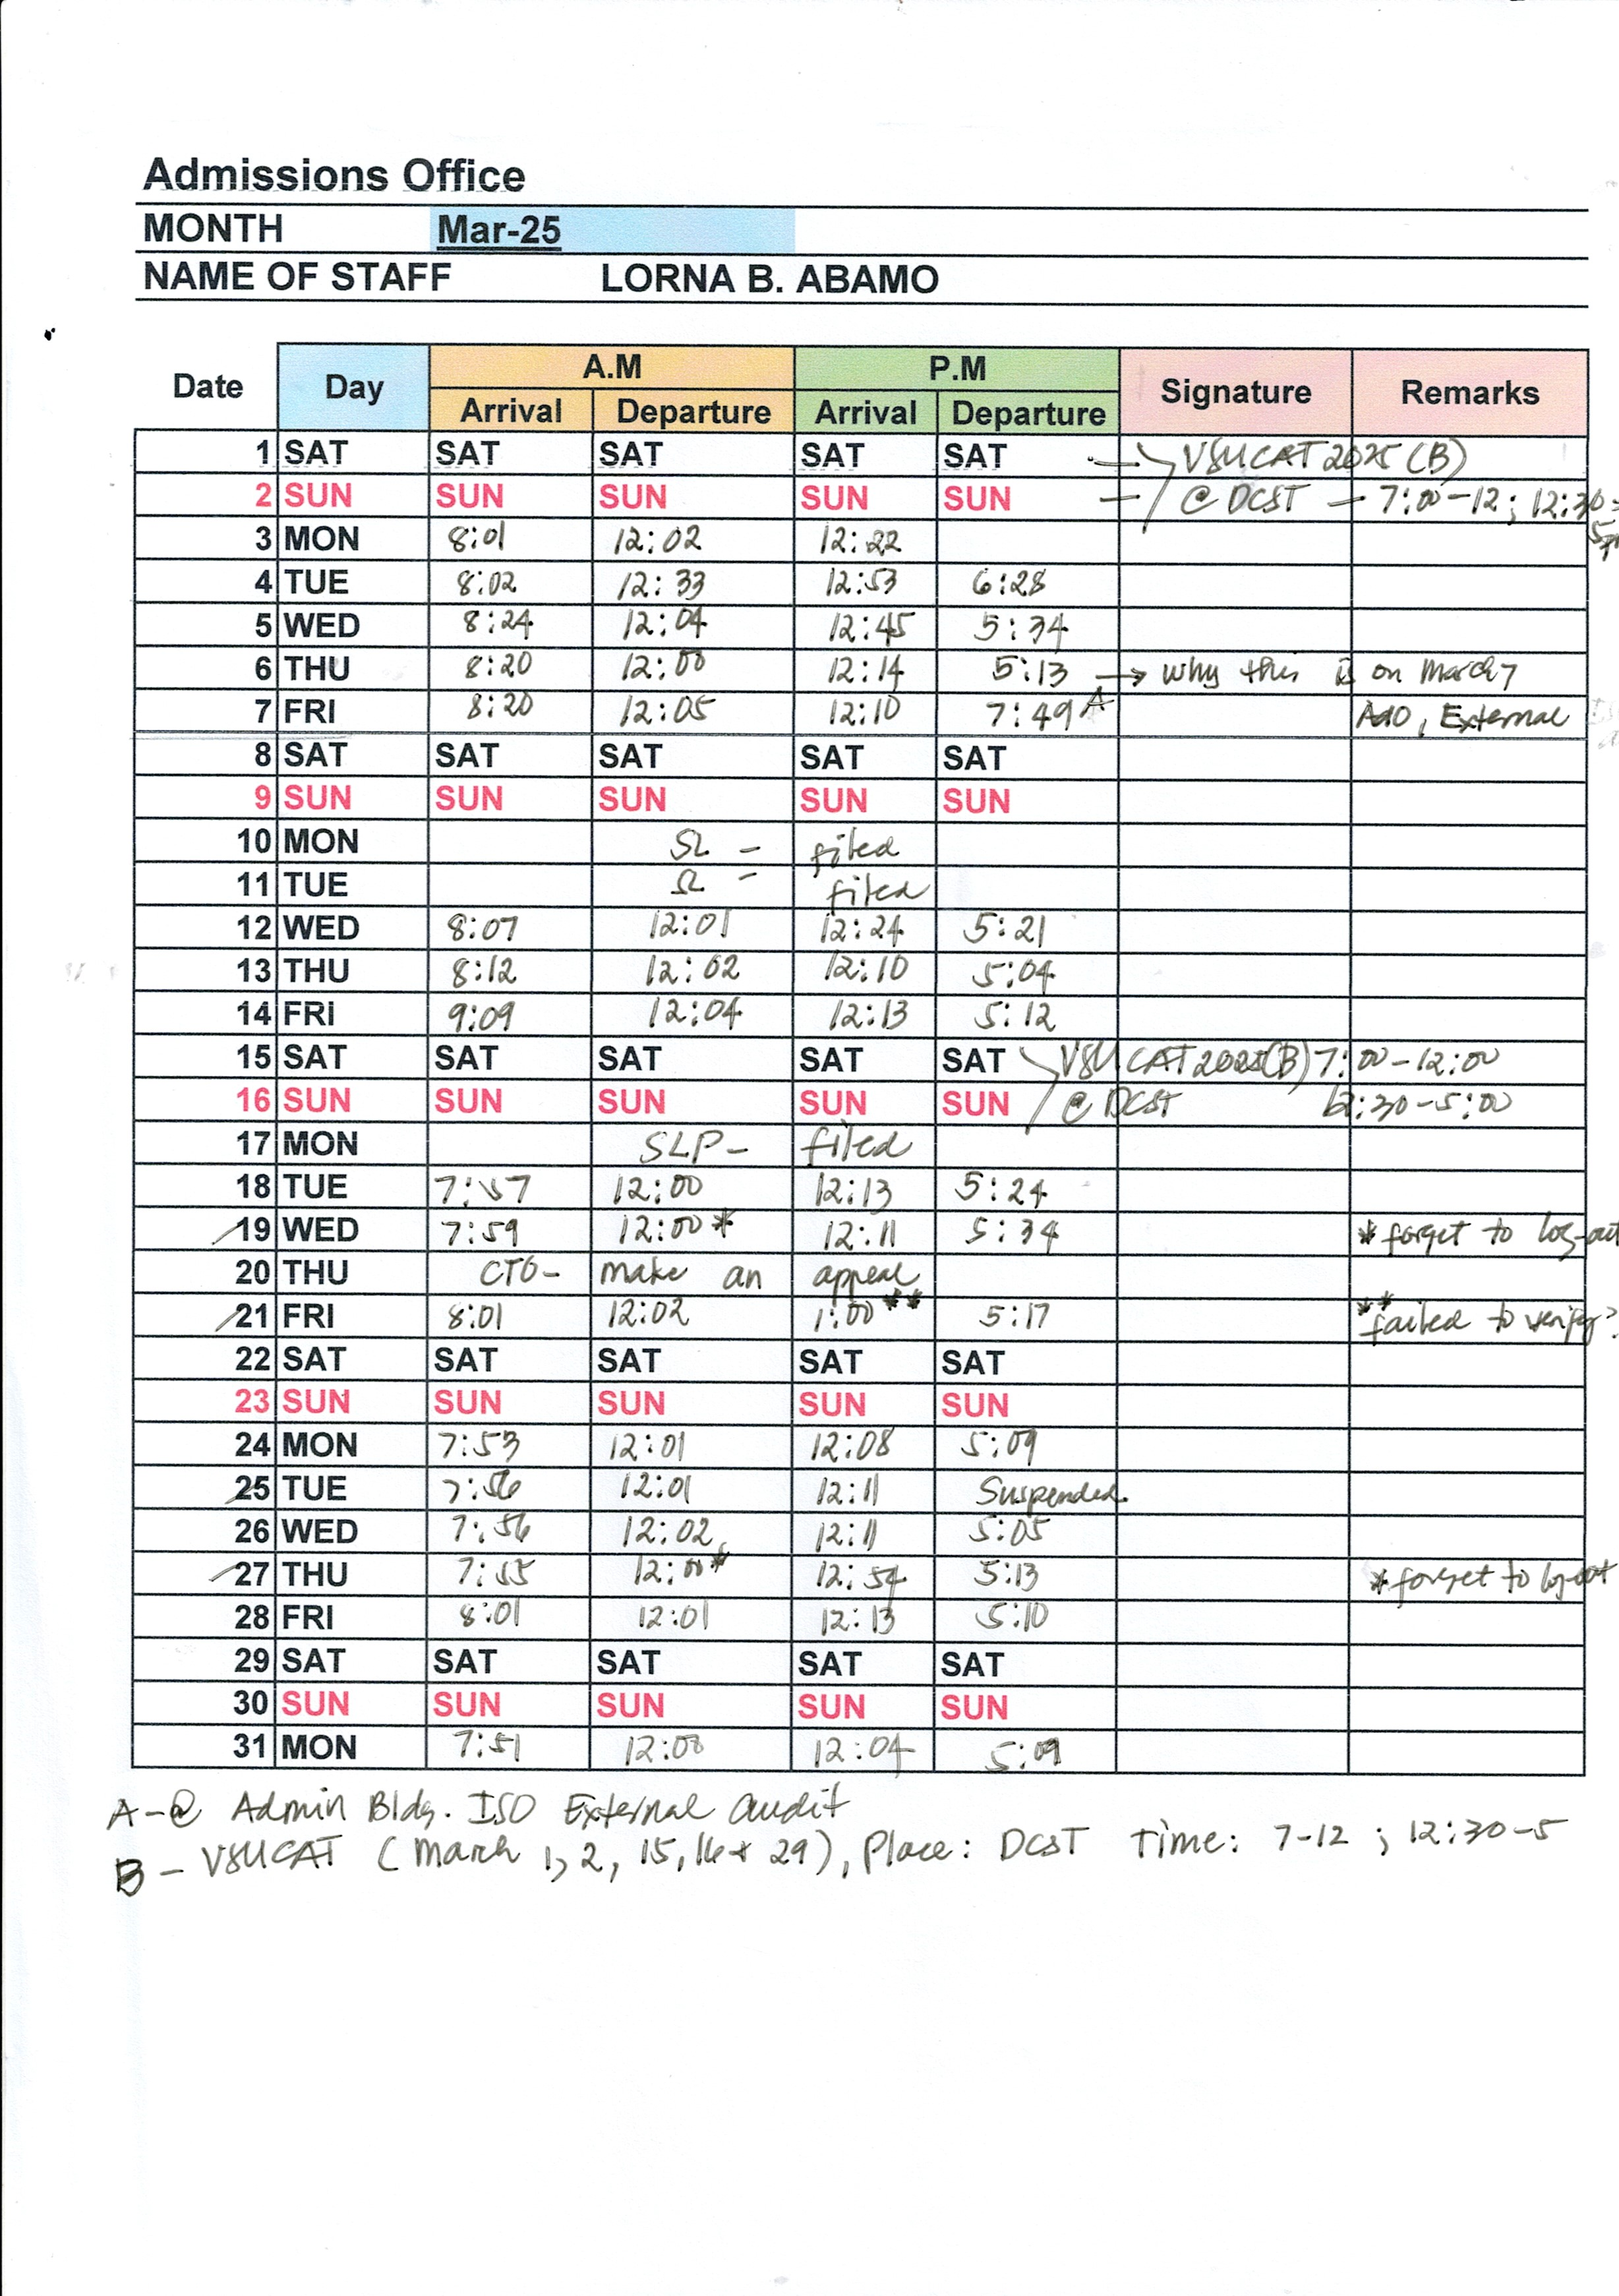 Admissions Office
MONTH Mar-25
NAME OF STAFF LORNA B. ABAMO
Date Day A.M P.M Signature Remarks
Arrival Departure Arrival Departure
1 SAT SAT SAT SAT SAT — VSUCAT 2025 (B)
2 SUN SUN SUN SUN SUN — @ DCST — 7:00-12; 12:30-
3 MON 8:01 12:02 12:22
4 TUE 8:02 12:33 12:53 6:28
5 WED 8:24 12:04 12:45 5:34
6 THU 8:20 12:00 12:14 5:13 → why this is on March 7
7 FRI 8:20 12:05 12:10 7:49 A External
8 SAT SAT SAT SAT SAT
9 SUN SUN SUN SUN SUN
10 MON SL - filed
11 TUE SL - filed
12 WED 8:07 12:01 12:24 5:21
13 THU 8:12 12:02 12:10 5:04
14 FRI 9:09 12:04 12:13 5:12
15 SAT SAT SAT SAT SAT VSUCAT 2025(B) 7:00-12:00
16 SUN SUN SUN SUN SUN @ DCST 12:30-5:00
17 MON SLP - filed
18 TUE 7:57 12:00 12:13 5:24
19 WED 7:59 12:00* 12:11 5:34 *forget to log-out
20 THU CTO- make an appeal
21 FRI 8:01 12:02 1:00** 5:17 **failed to verify?
22 SAT SAT SAT SAT SAT
23 SUN SUN SUN SUN SUN
24 MON 7:53 12:01 12:08 5:09
25 TUE 7:56 12:01 12:11 Suspended.
26 WED 7:56 12:02 12:11 5:05
27 THU 7:55 12:00* 12:54 5:13 *forget to log-out
28 FRI 8:01 12:01 12:13 5:10
29 SAT SAT SAT SAT SAT
30 SUN SUN SUN SUN SUN
31 MON 7:51 12:00 12:04 5:09
A-@ Admin Bldg. ISO External audit
B - VSUCAT (March 1, 2, 15, 16 & 29), Place: DCST Time: 7-12 ; 12:30-5